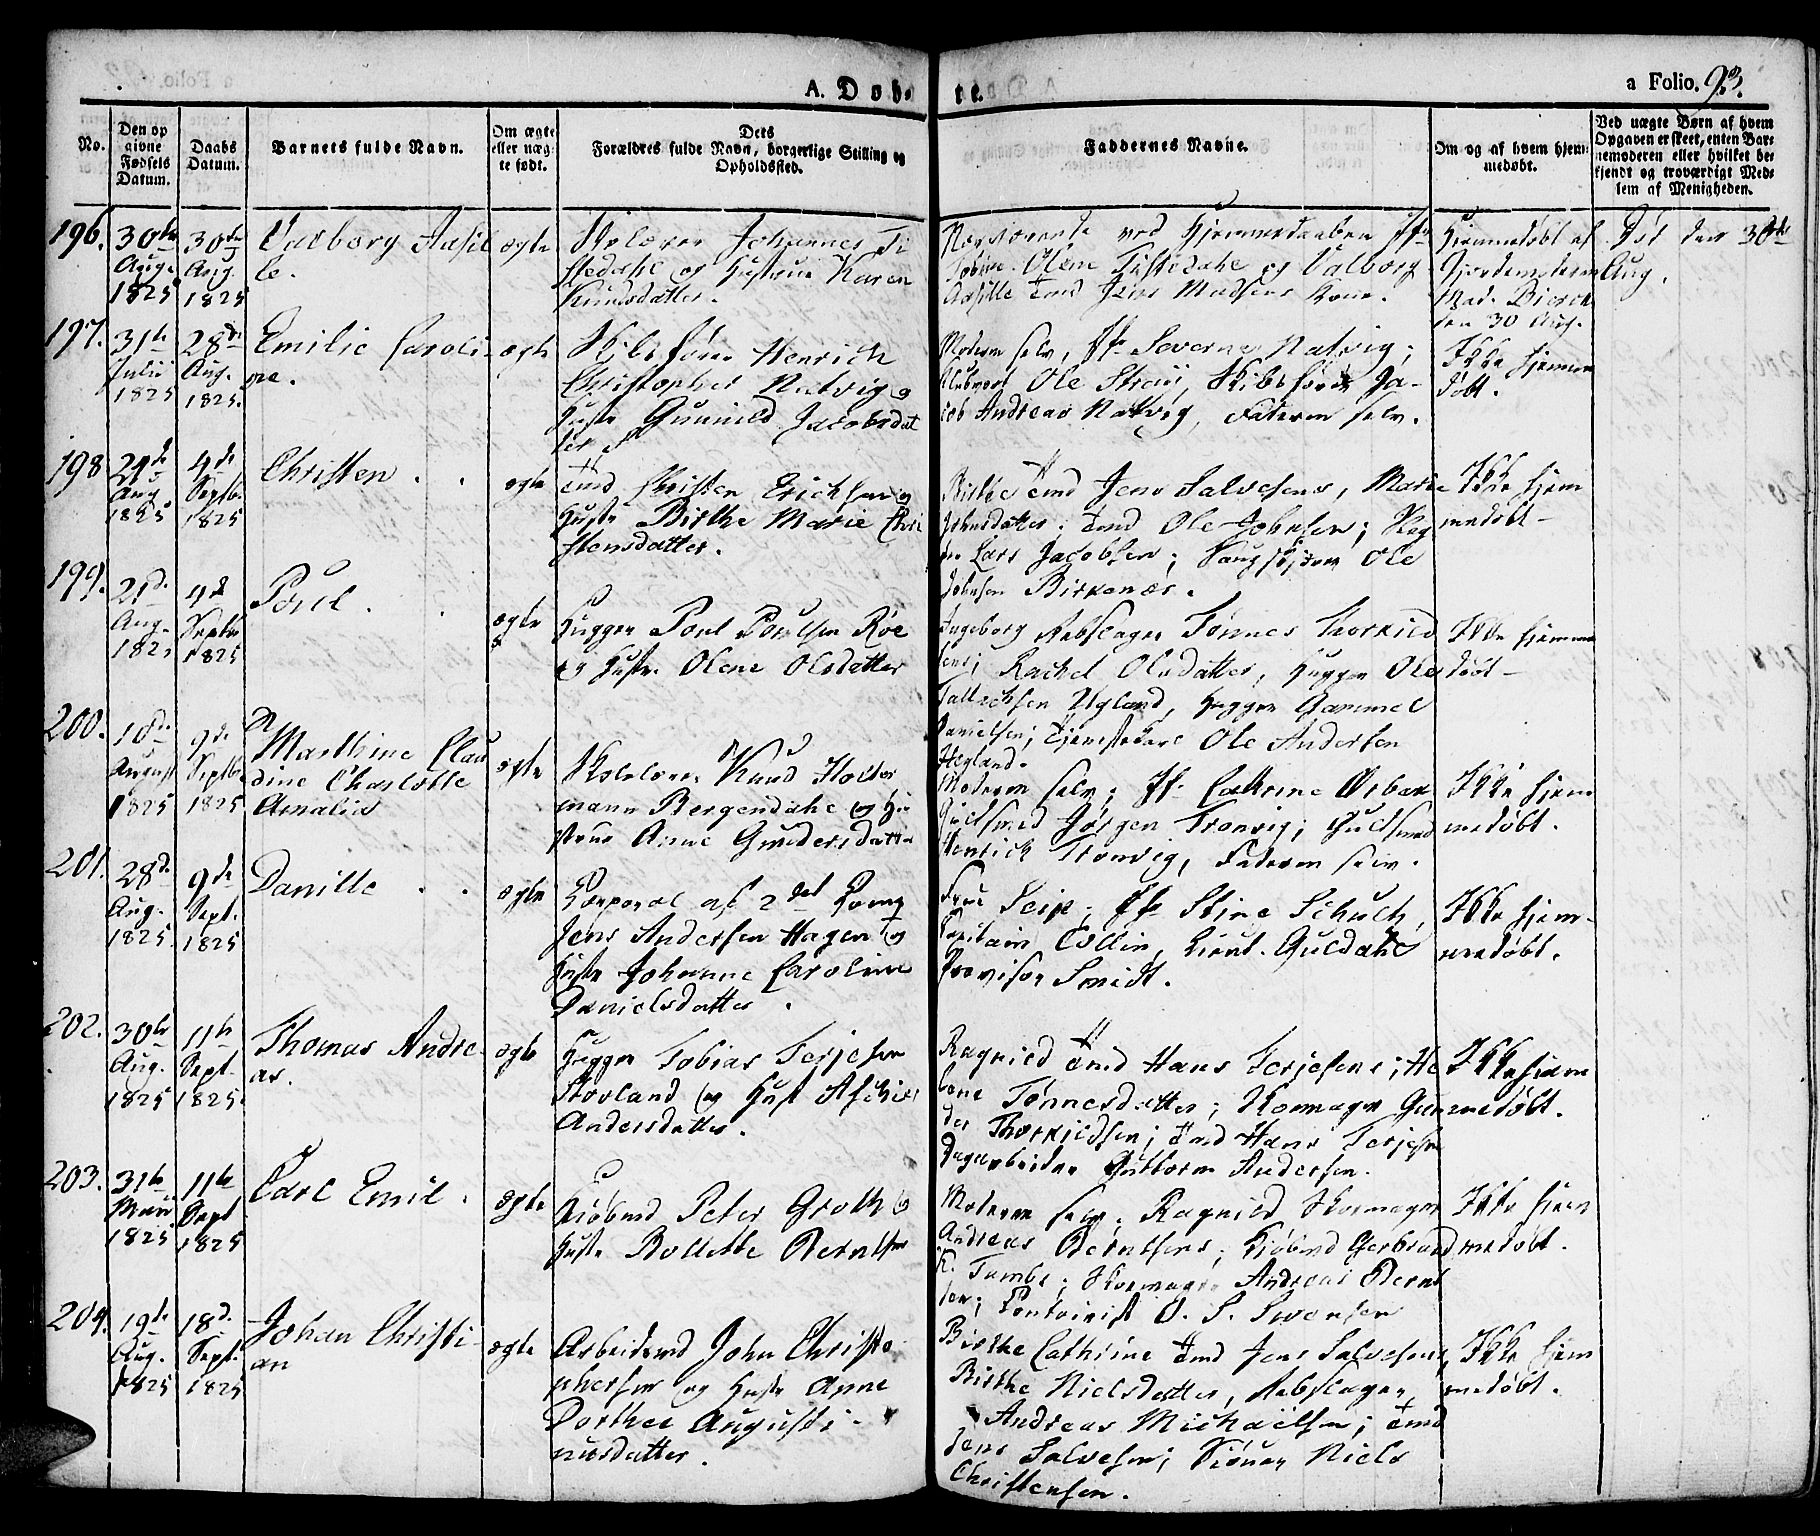 A. Døbte.
a Folio. 93.
No.
Den opgivne Fødsels Datum.
Daabs Datum.
Barnets fulde Navn.
Om ægte eller uægte født.
Dets Forældres fulde Navn, borgerlige Stilling og Opholdssted.
Faddernes Navne.
Om og af hvem hjemmedøbt.
Ved uægte Børn af hvem Opgaven er skeet, enten Barnemoderen eller hvilket bekjendt og troværdigt Medlem af Menigheden.
196.
30te Aug. 1825
30te Aug. 1825
Valborg Aasille.
ægte
Johannes Tistedahl og Hustrue Karen
Knudsdatter.
Nærværende ved Hjemmedaaben Jfr
Olene Tistedahl og Valborg
Aasille Tmd Jens Madsens Kone.
Hjemmedøbt af
Gjordemoderen
Mad. 
30 Aug.
Død den 30te
Aug.
197.
31te Julii 1825
28de Aug. 1825.
Emilie Caroline.
ægte
Skibsfører Henrich
Christopher Natvig og
Hustr Gunnild Jacobsdatter
Moderen selv, Jfr Severine Natvig;
Ole Strai, Skibsfører Ja-
cob Andreas Natvig, Faderen selv.
Ikke hjemmedøbt.
198
21de Aug. 1825
4de Septbr 1825
Christen
ægte
Tmd Christen Erichsen og
Hustr Birthe Marie Chri
stensdatter.
Birthe Tmd Jens Salvesens, Maren
Johnsdatter; Tmd Ole Johnsen;
Lars Jacobsen; Ole
Johnsen Birkenæs.
Ikke hjemmedøbt
199.
21de Aug. 1825
4de Septbr 1825
Poul
ægte
Hugger Poul Poulsen Røe
og Hustr. Olene Olsdatter
Ingeborg Rebslager Tønnes Thorkild
sens; Rachel Olsdatter, Hugger Ole
Tallachsen Ugland, Hugger Gammel
Danielsen; Tjenestekarl Ole Andersen
Hegland.
Ikke hjemmedøbt
200.
18de August 1825
9de Septbr 1825
Marthine Clau
dine Charlotte
Amalia
ægte
Skolelærer Knud Holter
mann Bergendahl og Hu
strue Anne Gundersdatter
Moderen selv; Jfr. Cathrine Ørbek
Guldsmed Jørgen Tronvig; Guldsmed
Henrich Tronvig, Faderen selv.
Ikke hjemmedøbt.
201.
28de Aug. 1825
9de Sept. 1825
Danille
ægte
Corporal af 2det Comp
Jens Andersen Hagen og
Hustr Johanne Caroline
Danielsdatter.
Frue Seip; Jfr Stine Schultz,
Capitain Collin, Lieut. Guldahl
Provisor Smidt.
Ikke hjemmedøbt.
202.
30te Aug. 1825
11te Sept. 1825.
Thomas Andre
as.
ægte
Hugger Tobias Terjesen
Stovland og Hust
Andersdatter.
Ragnild Tmd Hans Terjesens; He
lene Tønnesdatter; Skomager Gun
der Thorkildsen; Tmd Hans Terjesen
Dagarbeider Guttorm Andersen.
Ikke hjemmedøbt.
203.
31te Maii 1825
11te Sept 1825
Carl Emil.
ægte
Kjøbmd Peter Groth og
Hustr Rollette Berntsen
Moderen selv. Ragnild Skomager
Andreas Berntsens; Kjøbmd Gerbrand
K. Tambs; Skomager Andreas Bernt
sen; Contoirist O. S. Swensen
Ikke hjemmedøbt.
204.
19de Aug. 1825
18de Sept. 1825
Johan Christi-
an
ægte
Arbeidsmd John Christo
phersen og Hustr Anne
Dorthea Augusti-
nusdatter.
Birthe Cathrine Tmd Jens Salvesens,
Birthe Nielsdatter, Rebslager
Andreas Michaelsen; Tmd
Jens Salvesen; Niels
Christensen.
Ikke hjemmedøbt.